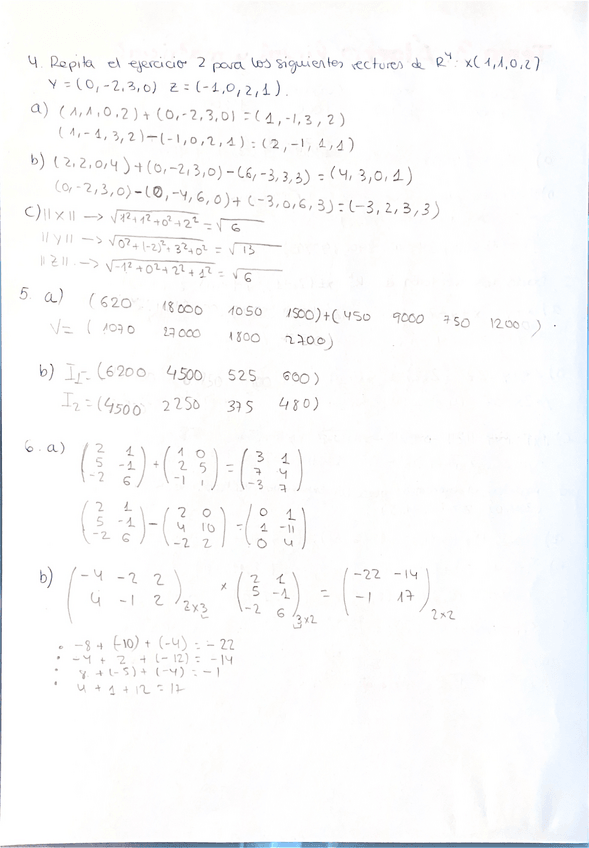 4. Repita el ejercicio 2 para los siguientes vectores de R⁴: x(1,1,0,2)
Y = (0,-2,3,0) Z = (-1,0,2,1).
a) (1,1,0,2) + (0,-2,3,0) = (1,-1,3,2)
(1,-1,3,2) - (-1,0,2,1) = (2,-1,1,1)
b) (2,2,0,4) + (0,-2,3,0) - (6,-3,3,3) = (4,3,0,1)
(0,-2,3,0) - (0,-4,6,0) + (-3,0,6,3) = (-3,2,3,3)
c) ||X|| → √1²+1²+0²+2² = √6
||Y|| → √0²+(-2)²+3²+0² = √13
||Z|| → √-1²+0²+2²+1² = √6
5. a) (620 18000 1050 1500) + (450 9000 750 1200).
V= (1070 27000 1800 2700)
b) I₁= (6200 4500 525 600)
I₂ = (4500 2250 375 480)
6. a) (2 1 (1 0 (3 1
5 -1 + 2 5 = 7 4
-2 6) -1 1) -3 7)
(2 1 (2 0 (0 1
5 -1 - 4 10 = 1 -11
-2 6) -2 2) 0 4)
b) (-4 -2 2 (2 1 (-22 -14
4 -1 2)2x3 x 5 -1 = -1 17)2x2
-2 6)3x2
• -8 + (-10) + (-4) = -22
• -4 + 2 + (-12) = -14
• 8 + (-5) + (-4) = -1
• 4 + 1 + 12 = 17